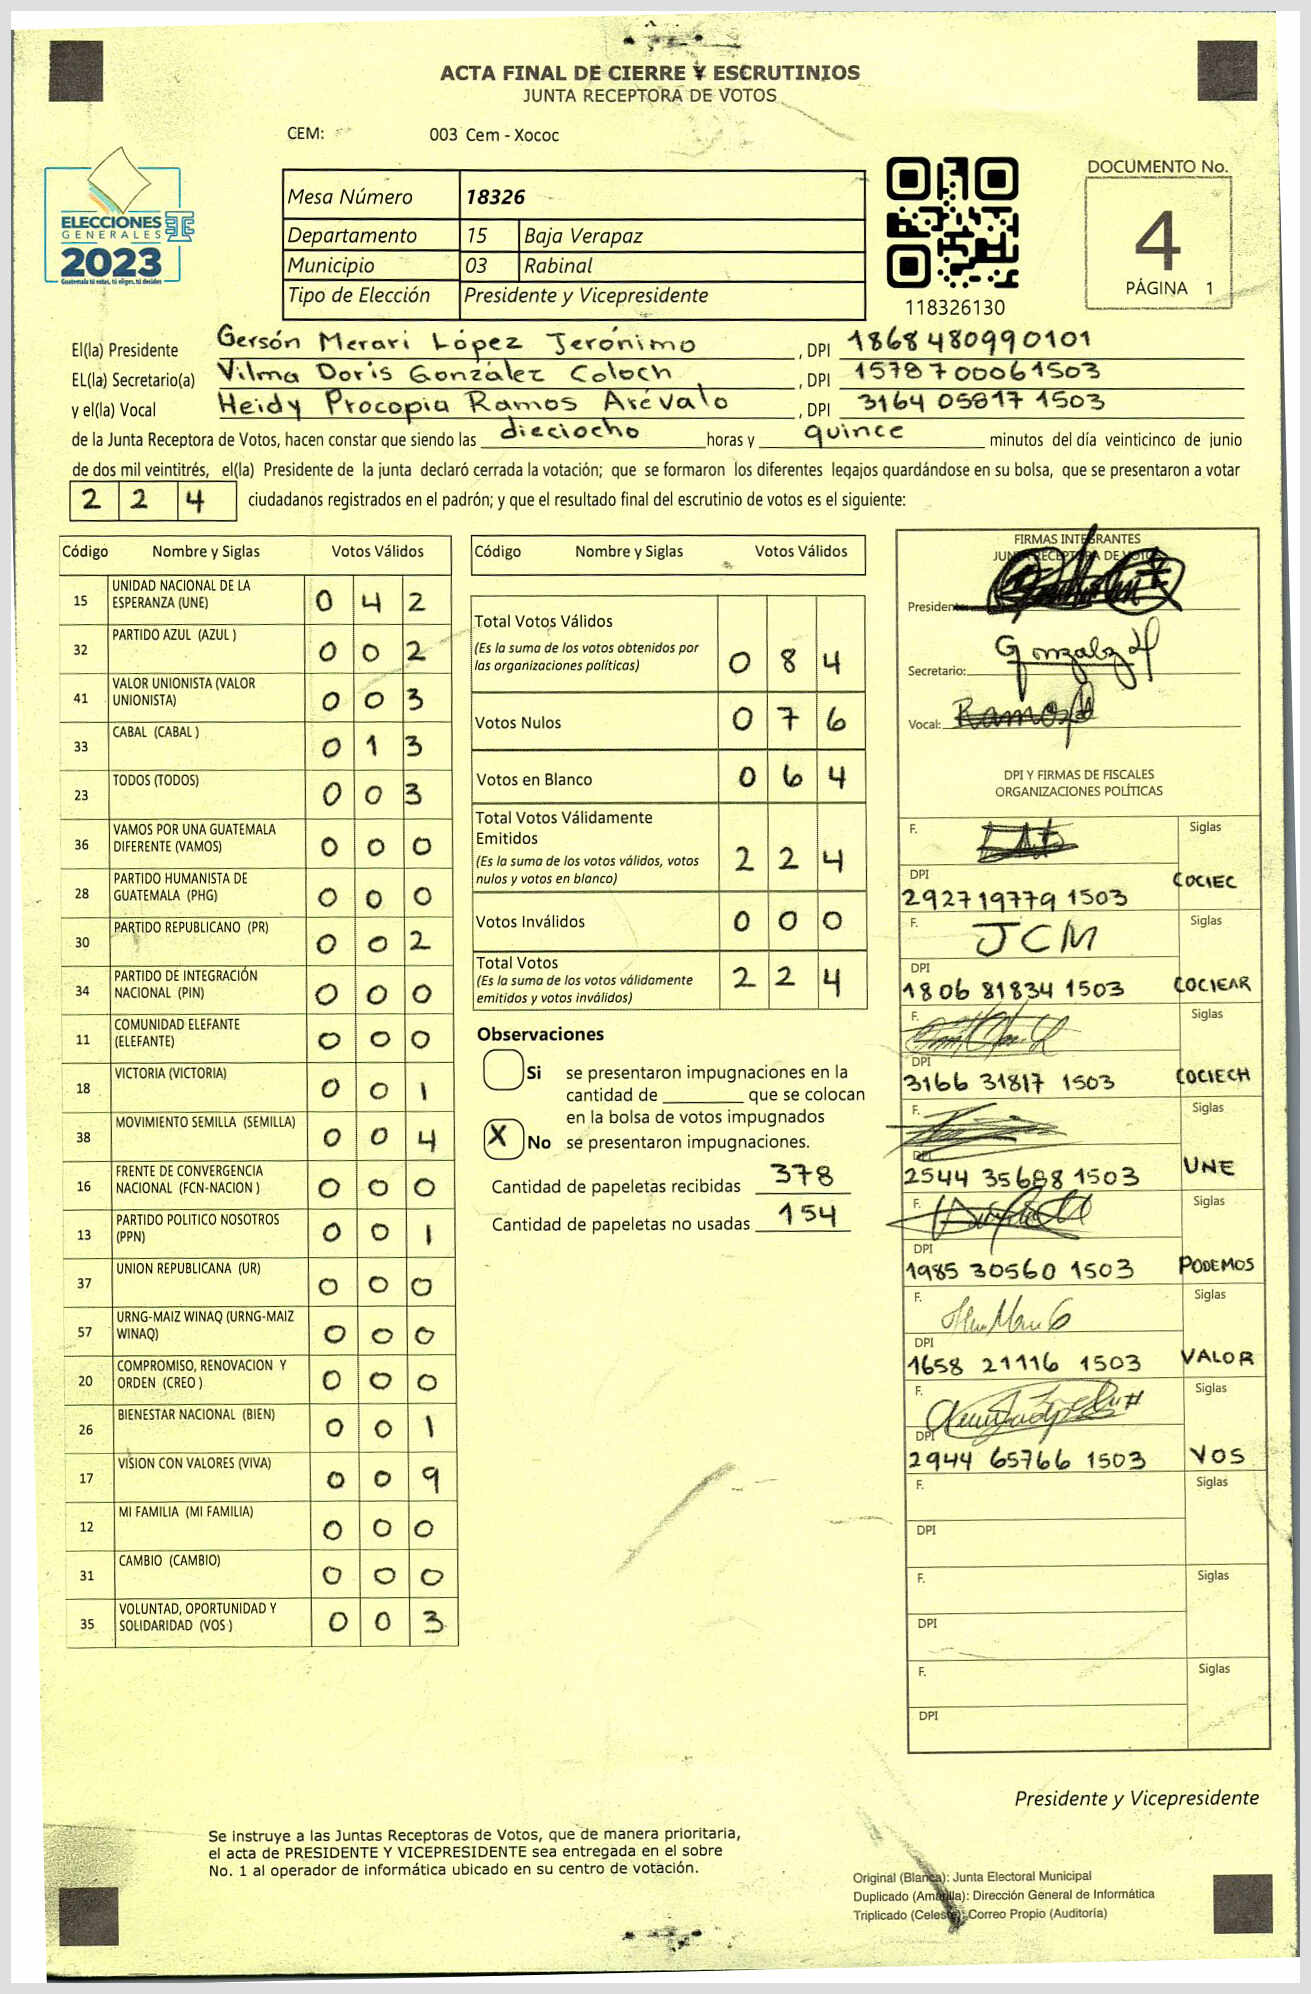 ACTA FINAL DE CIERRE Y ESCRUTINIOS
JUNTA RECEPTORA DE VOTOS
CEM: 003 Cem - Xococ
ELECCIONES
GENERALES
2023
Guatemala tú votas, tú eliges, tú decides
Mesa Número 18326
Departamento 15 Baja Verapaz
Municipio 03 Rabinal
Tipo de Elección Presidente y Vicepresidente
118326130
DOCUMENTO No.
4
PÁGINA 1
El(la) Presidente Gersón Merari López Jerónimo , DPI 1868 48099 0101
EL(la) Secretario(a) Vilma Doris González Coloch , DPI 1578 70006 1503
y el(la) Vocal Heidy Procopia Ramos Arévalo , DPI 3164 05817 1503
de la Junta Receptora de Votos, hacen constar que siendo las dieciocho horas y quince minutos del día veinticinco de junio
de dos mil veintitrés, el(la) Presidente de la junta declaró cerrada la votación; que se formaron los diferentes legajos guardándose en su bolsa, que se presentaron a votar
2 2 4 ciudadanos registrados en el padrón; y que el resultado final del escrutinio de votos es el siguiente:
Código Nombre y Siglas Votos Válidos
15 UNIDAD NACIONAL DE LA ESPERANZA (UNE) 0 4 2
32 PARTIDO AZUL (AZUL ) 0 0 2
41 VALOR UNIONISTA (VALOR UNIONISTA) 0 0 3
33 CABAL (CABAL ) 0 1 3
23 TODOS (TODOS) 0 0 3
36 VAMOS POR UNA GUATEMALA DIFERENTE (VAMOS) 0 0 0
28 PARTIDO HUMANISTA DE GUATEMALA (PHG) 0 0 0
30 PARTIDO REPUBLICANO (PR) 0 0 2
34 PARTIDO DE INTEGRACIÓN NACIONAL (PIN) 0 0 0
11 COMUNIDAD ELEFANTE (ELEFANTE) 0 0 0
18 VICTORIA (VICTORIA) 0 0 1
38 MOVIMIENTO SEMILLA (SEMILLA) 0 0 4
16 FRENTE DE CONVERGENCIA NACIONAL (FCN-NACION ) 0 0 0
13 PARTIDO POLITICO NOSOTROS (PPN) 0 0 1
37 UNION REPUBLICANA (UR) 0 0 0
57 URNG-MAIZ WINAQ (URNG-MAIZ WINAQ) 0 0 0
20 COMPROMISO, RENOVACION Y ORDEN (CREO ) 0 0 0
26 BIENESTAR NACIONAL (BIEN) 0 0 1
17 VISION CON VALORES (VIVA) 0 0 9
12 MI FAMILIA (MI FAMILIA) 0 0 0
31 CAMBIO (CAMBIO) 0 0 0
35 VOLUNTAD, OPORTUNIDAD Y SOLIDARIDAD (VOS ) 0 0 3
Código Nombre y Siglas Votos Válidos
Total Votos Válidos
(Es la suma de los votos obtenidos por
las organizaciones políticas) 0 8 4
Votos Nulos 0 7 6
Votos en Blanco 0 6 4
Total Votos Válidamente
Emitidos
(Es la suma de los votos válidos, votos
nulos y votos en blanco) 2 2 4
Votos Inválidos 0 0 0
Total Votos
(Es la suma de los votos válidamente
emitidos y votos inválidos) 2 2 4
Observaciones
Si se presentaron impugnaciones en la
cantidad de ________ que se colocan
en la bolsa de votos impugnados
X No se presentaron impugnaciones.
Cantidad de papeletas recibidas 378
Cantidad de papeletas no usadas 154
FIRMAS INTEGRANTES
JUNTA RECEPTORA DE VOTOS
Presidente:
Secretario: Gonzalez
Vocal: Ramos
DPI Y FIRMAS DE FISCALES
ORGANIZACIONES POLÍTICAS
F. Siglas
DPI COCIEC
2927 19779 1503
F. JCM Siglas
DPI
1806 81834 1503 COCIEAR
F. Siglas
DPI
3166 31817 1503 COCIECH
F. Siglas
DPI
2544 35688 1503 UNE
F. Siglas
DPI
1985 30560 1503 PODEMOS
F. Siglas
DPI
1658 21116 1503 VALOR
F. Siglas
DPI
2944 65766 1503 VOS
F. Siglas
DPI
F. Siglas
DPI
F. Siglas
DPI
Presidente y Vicepresidente
Se instruye a las Juntas Receptoras de Votos, que de manera prioritaria,
el acta de PRESIDENTE Y VICEPRESIDENTE sea entregada en el sobre
No. 1 al operador de informática ubicado en su centro de votación.
Original (Blanca): Junta Electoral Municipal
Duplicado (Amarilla): Dirección General de Informática
Triplicado (Celeste): Correo Propio (Auditoría)